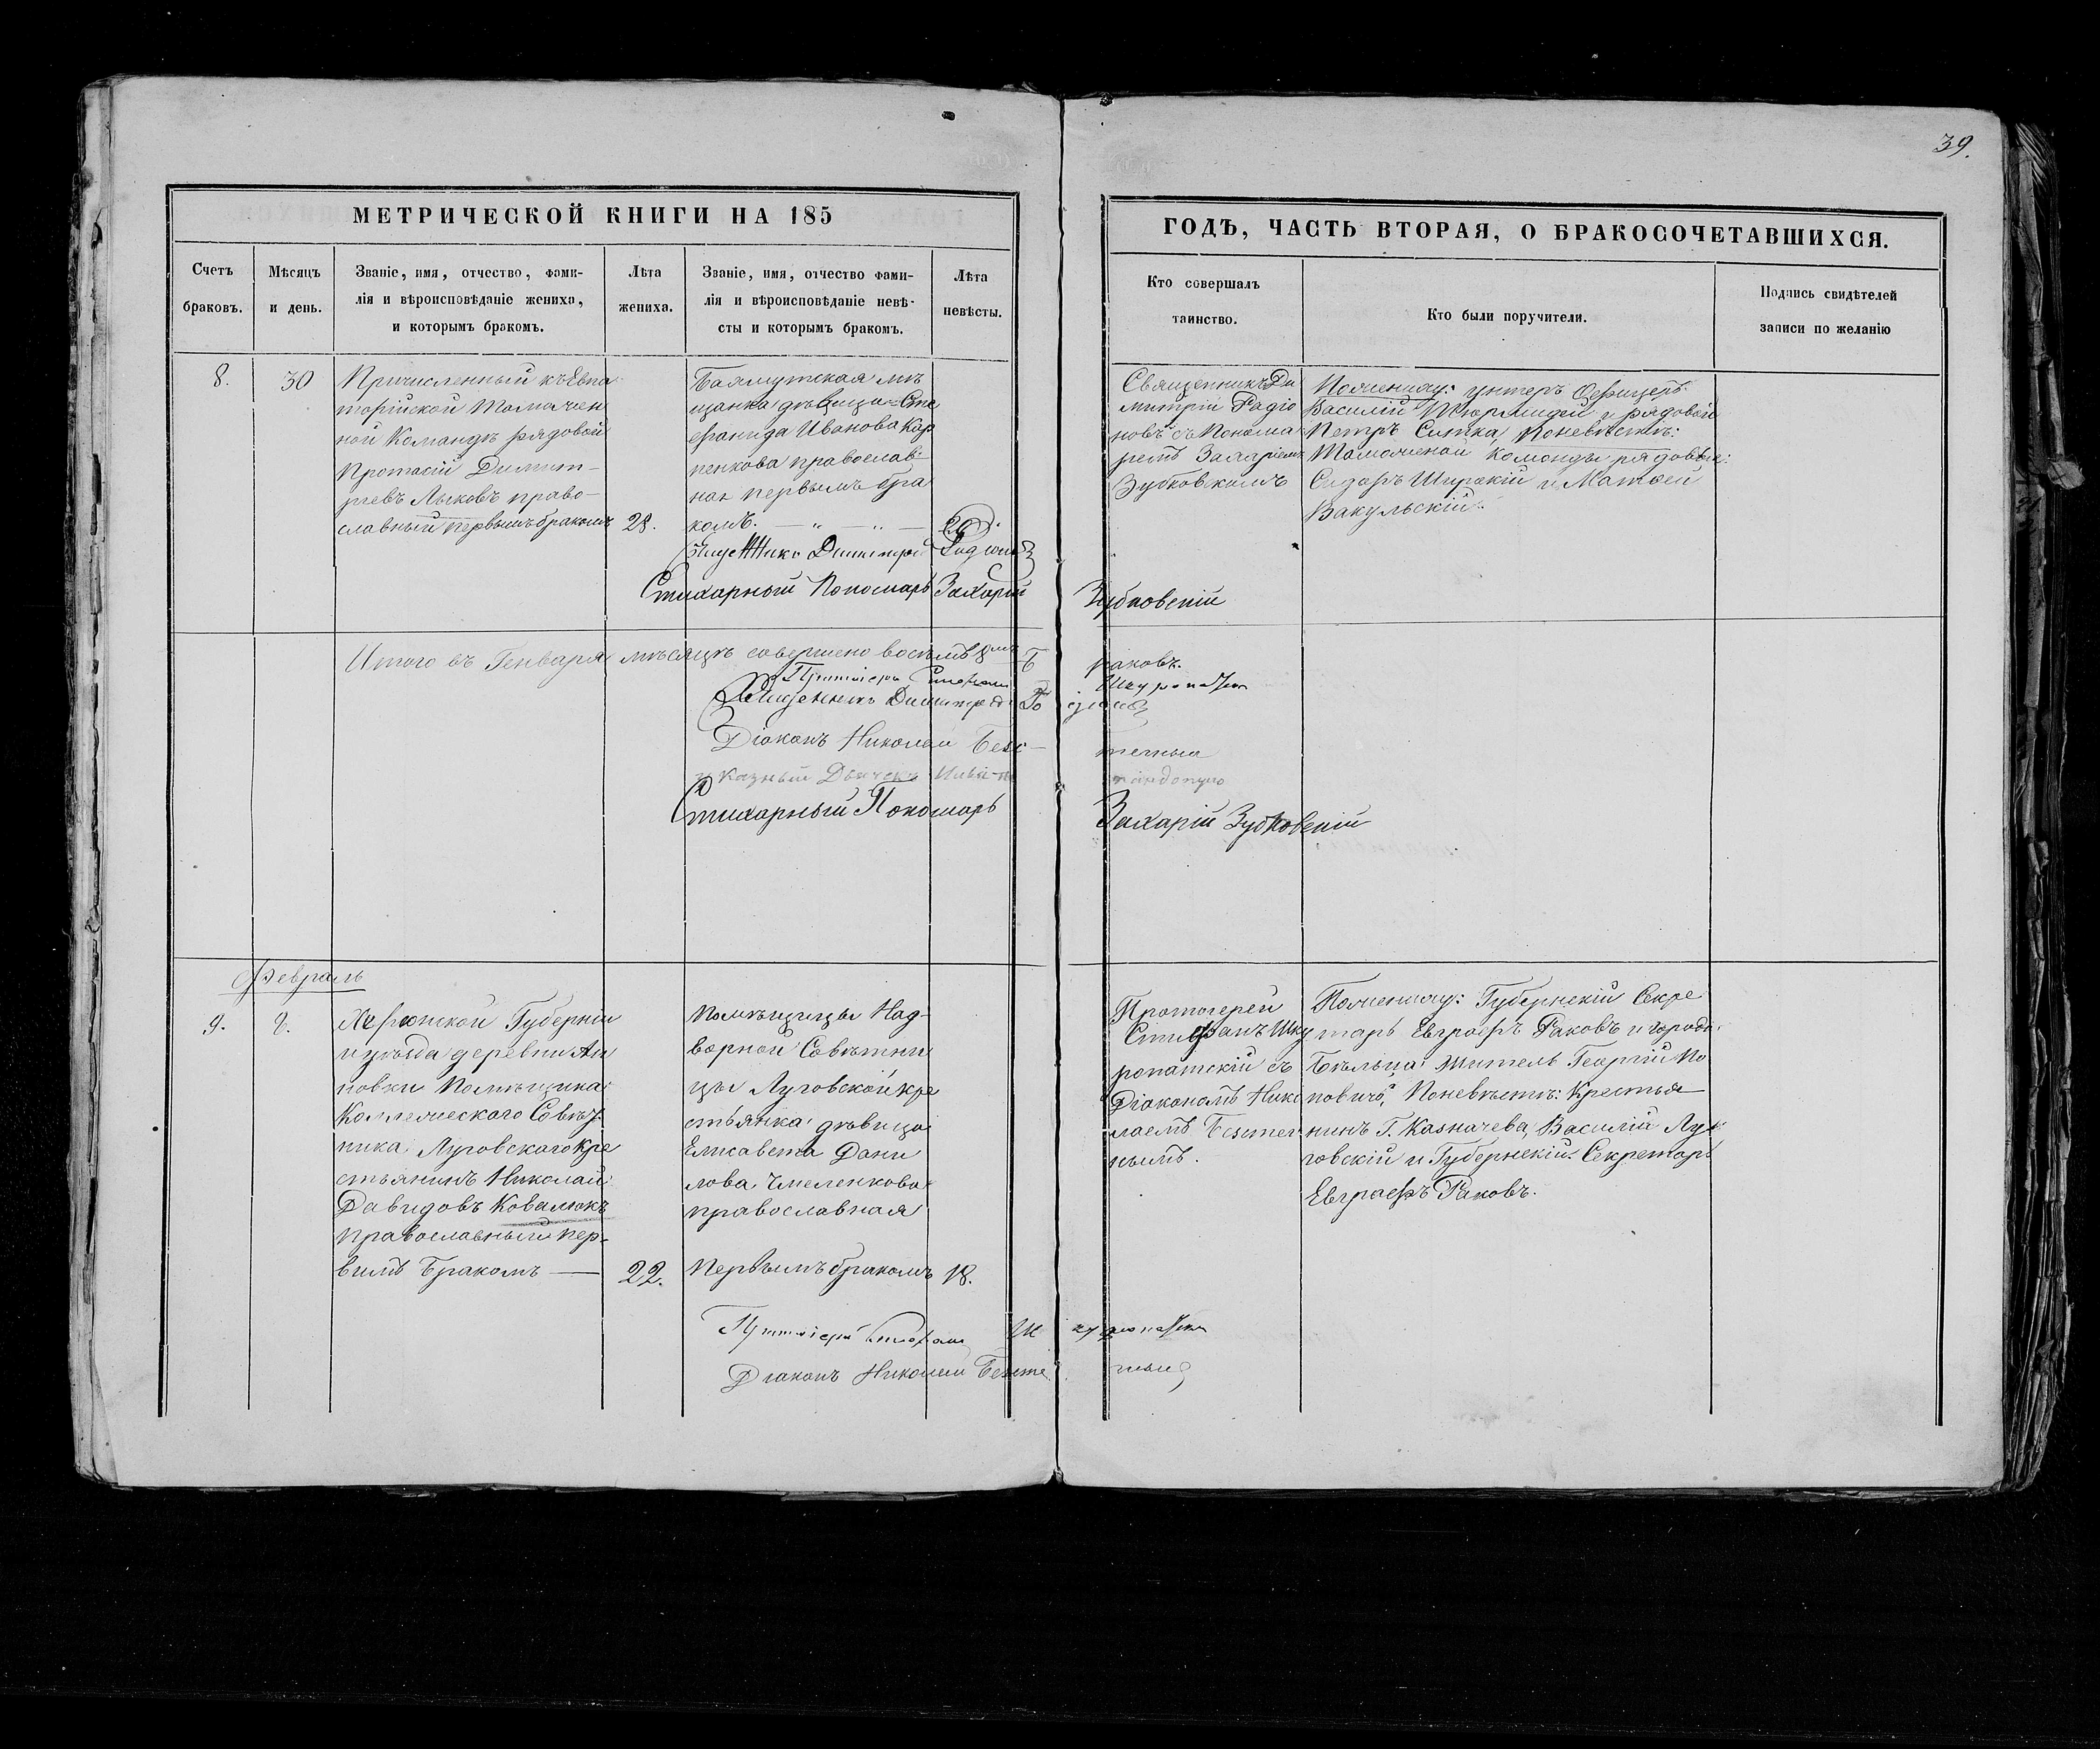 39.
МЕТРИЧЕСКОЙ КНИГИ НА 185
ГОДЪ, ЧАСТЬ ВТОРАЯ, О БРАКОСОЧЕТАВШИХСЯ.
Счетъ браковъ.
Мѣсяцъ и день.
Званіе, имя, отчество, фами-
лія и вѣроисповѣданіе жениха,
и которымъ бракомъ.
Лѣта жениха.
Званіе, имя, отчество фами-
лія и вѣроисповѣданіе невѣ-
сты и которымъ бракомъ.
Лѣта невѣсты.
Кто совершалъ
таинство.
Кто были поручители.
Подпись свидѣтелей
записи по желанію
8.
30
Причисленный къ Евпа
торійской Таможен
ной Командѣ рядовой
Протасій Димит-
ріевъ Лыковъ право-
славный первымъ бракомъ
28.
мѣ
щанка дѣвица Сте
фанида Иванова Кар
пенкова православ
ная первымъ бра
комъ.
20.
Священникъ Ди
митрій Радіо
новъ съ Понома
ремъ Захаріемъ
Зубковскимъ
По жениху: унтеръ Офицеръ
Василій и рядовой
Петръ Ситка, По невѣстѣ:
Таможеной команды рядовые:
Сидоръ Широкій и Матвей
Вакульскій.
Димитрій Радіоновъ
Стихарный Пономарь Захарій Зубковскій
Итого въ Генварѣ мѣсяцѣ совершено восѣмъ 8мь Браковъ.
Протоіерей Стефанъ Шкуропатскій
Священникъ Димитрій
Діаконъ Николай Безстечный
указный Дьячекъ
Стихарный Пономарь Захарій Зубковскій
Февраль
9.
2.
Херсонской Губерніи
и уѣзда деревни Ан
новки Помѣщика
Коллежескаго Совѣт
ника Луговскаго Кре
стьянинъ Николай
Давидовъ Ковалюкъ
православный пер-
вимъ Бракомъ
22.
Помѣщицы Над-
ворной Совѣтни
цы Луговской кре
стьянка дѣвица
Елисавета Дани
лова Чмеленкова
православная
Первымъ бракомъ
18.
Протоіерей
Стефанъ Шку
ропатскій съ
Діакономъ Нико
лаемъ
нымъ.
По жениху: Губернскій Секре
тарь Евграфъ Раковъ и городо
Бѣльца житель Георгій По
повичъ, По невѣстѣ: Крестья
нинъ Г. Казначева, Василій Лу
говскій и Губернскій Секретарь
Евграфъ Раковъ.
Протоіерей Стефанъ Шкуропатскій
Діаконъ Николай